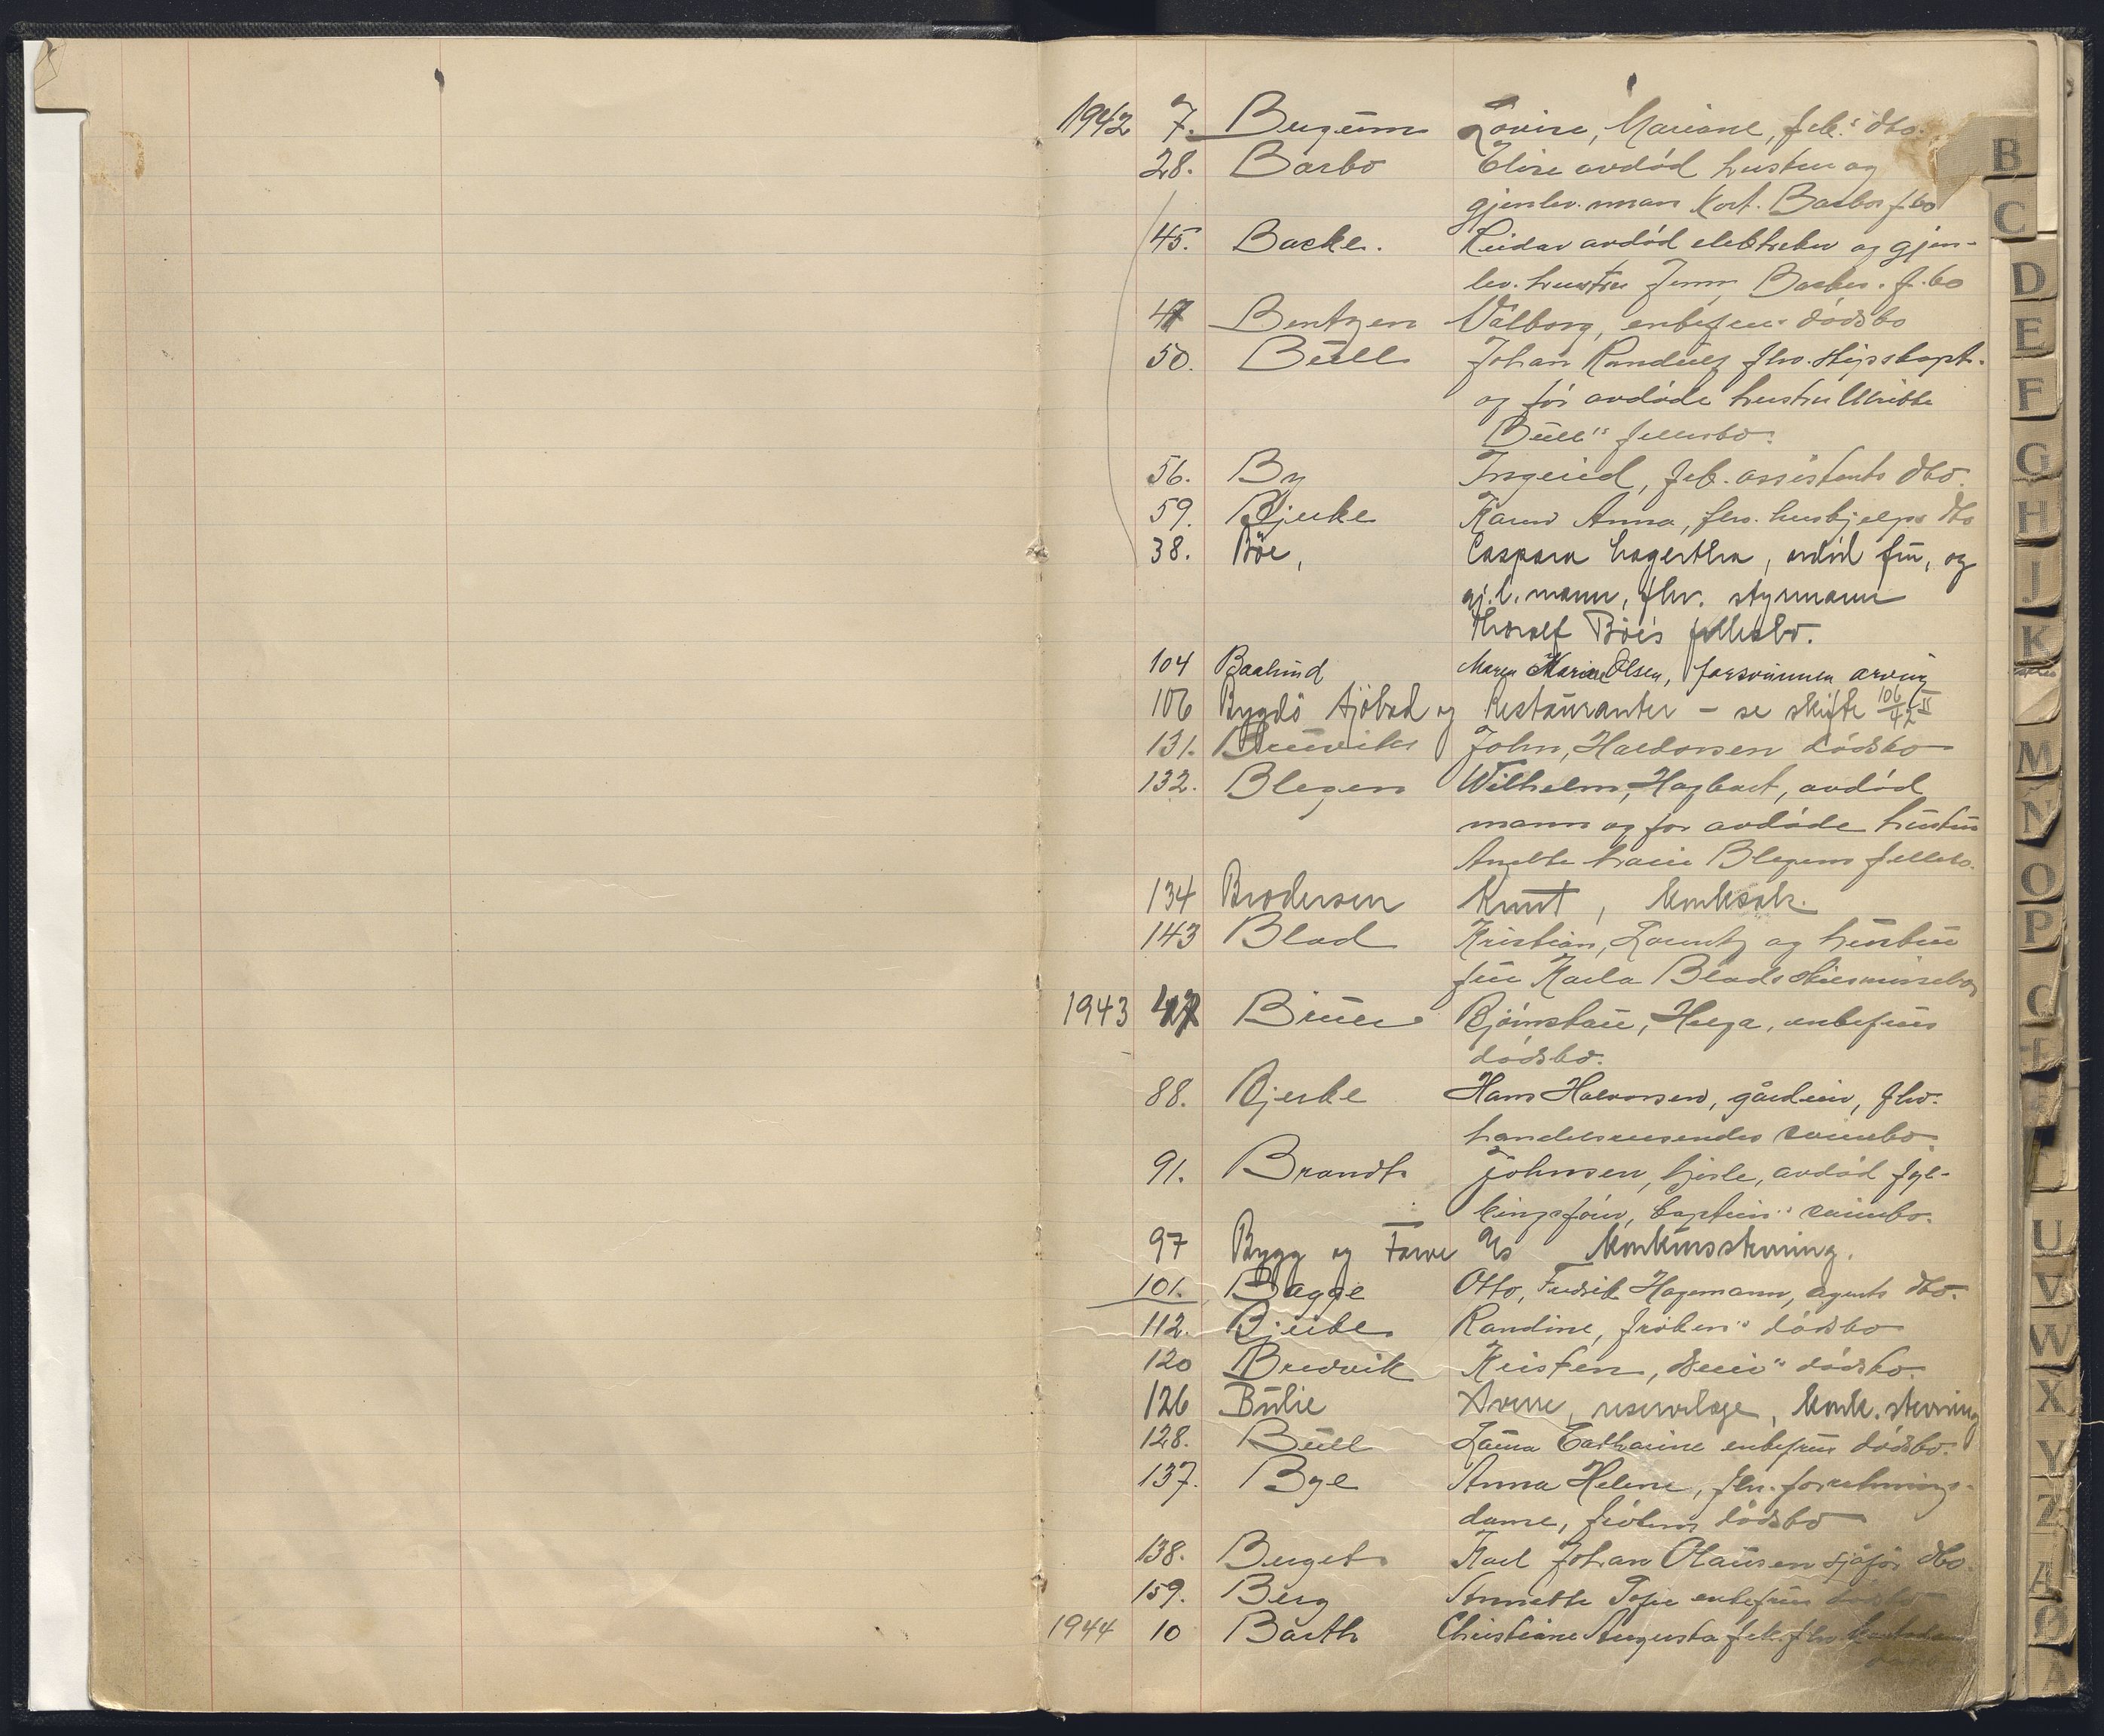 1942 7. Lovise, Mariane, frk.s dbo.
28. Barbo Elise avdød hustru og
gjenlev. mann Kort. Barbos f.bo
45. Backe. Reidar avdød elektriker og gjen-
lev. hustru Backes f.bo
Bentzen Valborg, enkefrus dødsbo
50. Bull Johan Randulf fhv. skipskapt.
og før avdøde hustru
Bull's fellesbo.
56. By Ingerid, frk. assistents dbo.
59. Bjerke Karen Anna, fhv. hushjelps dbo
38. Bøe, Caspara Lagertha, avdød fru, og
gj.l. mann, fhv. styrmann
Thoralf Bøe's fellesbo.
104 Baalsrud Maren Marie Olsen, forsvunnen arving
106 Bygdø Sjøbad og Restauranter - se skifte 106/42 II
131. Bruvik John, Haldorsen dødsbo
132. Blegen Wilhelm, Hagbart, avdød
mann og før avdøde hustru
Anette Blegens fellesbo.
134 Brodersen Knut, konk.sak.
143 Blad Kristian, Lauritz og hustru
fru Karla Blads skilsmissebo
1943 Bruu Bjørnstad, Helga, enkefrus
dødsbo.
88. Bjerke Hans Halvorsen, gårdeier, fhv.
handelsreisendes
91. Brandt Johnsen, avdød fyl-
kingsfører,
97 Bygg og Farve A/s Konkursstevning.
101. Bagge Otto, Fredrik Hagemann, agents dbo.
112. Bjerke Randine, frøken's dødsbo
120 Bredvik Kristen, dødsbo.
126 Bulie Sverre, reservelæge, konk. stevning
128. Bull Laura Catharine enkefrus dødsbo.
137. Bye Anna Helene, fhv. forretnings-
dame, frøkens dødsbo
138. Berget Karl Johan Olausen sjåfør dbo.
159. Berg Annette enkefrus dødsbo
1944 10 Barth Christiane Augusta frk. fhv
B
C
D
E
F
G
H
J
K
M
N
O
P
U
V
W
X
Y
Z
Ø